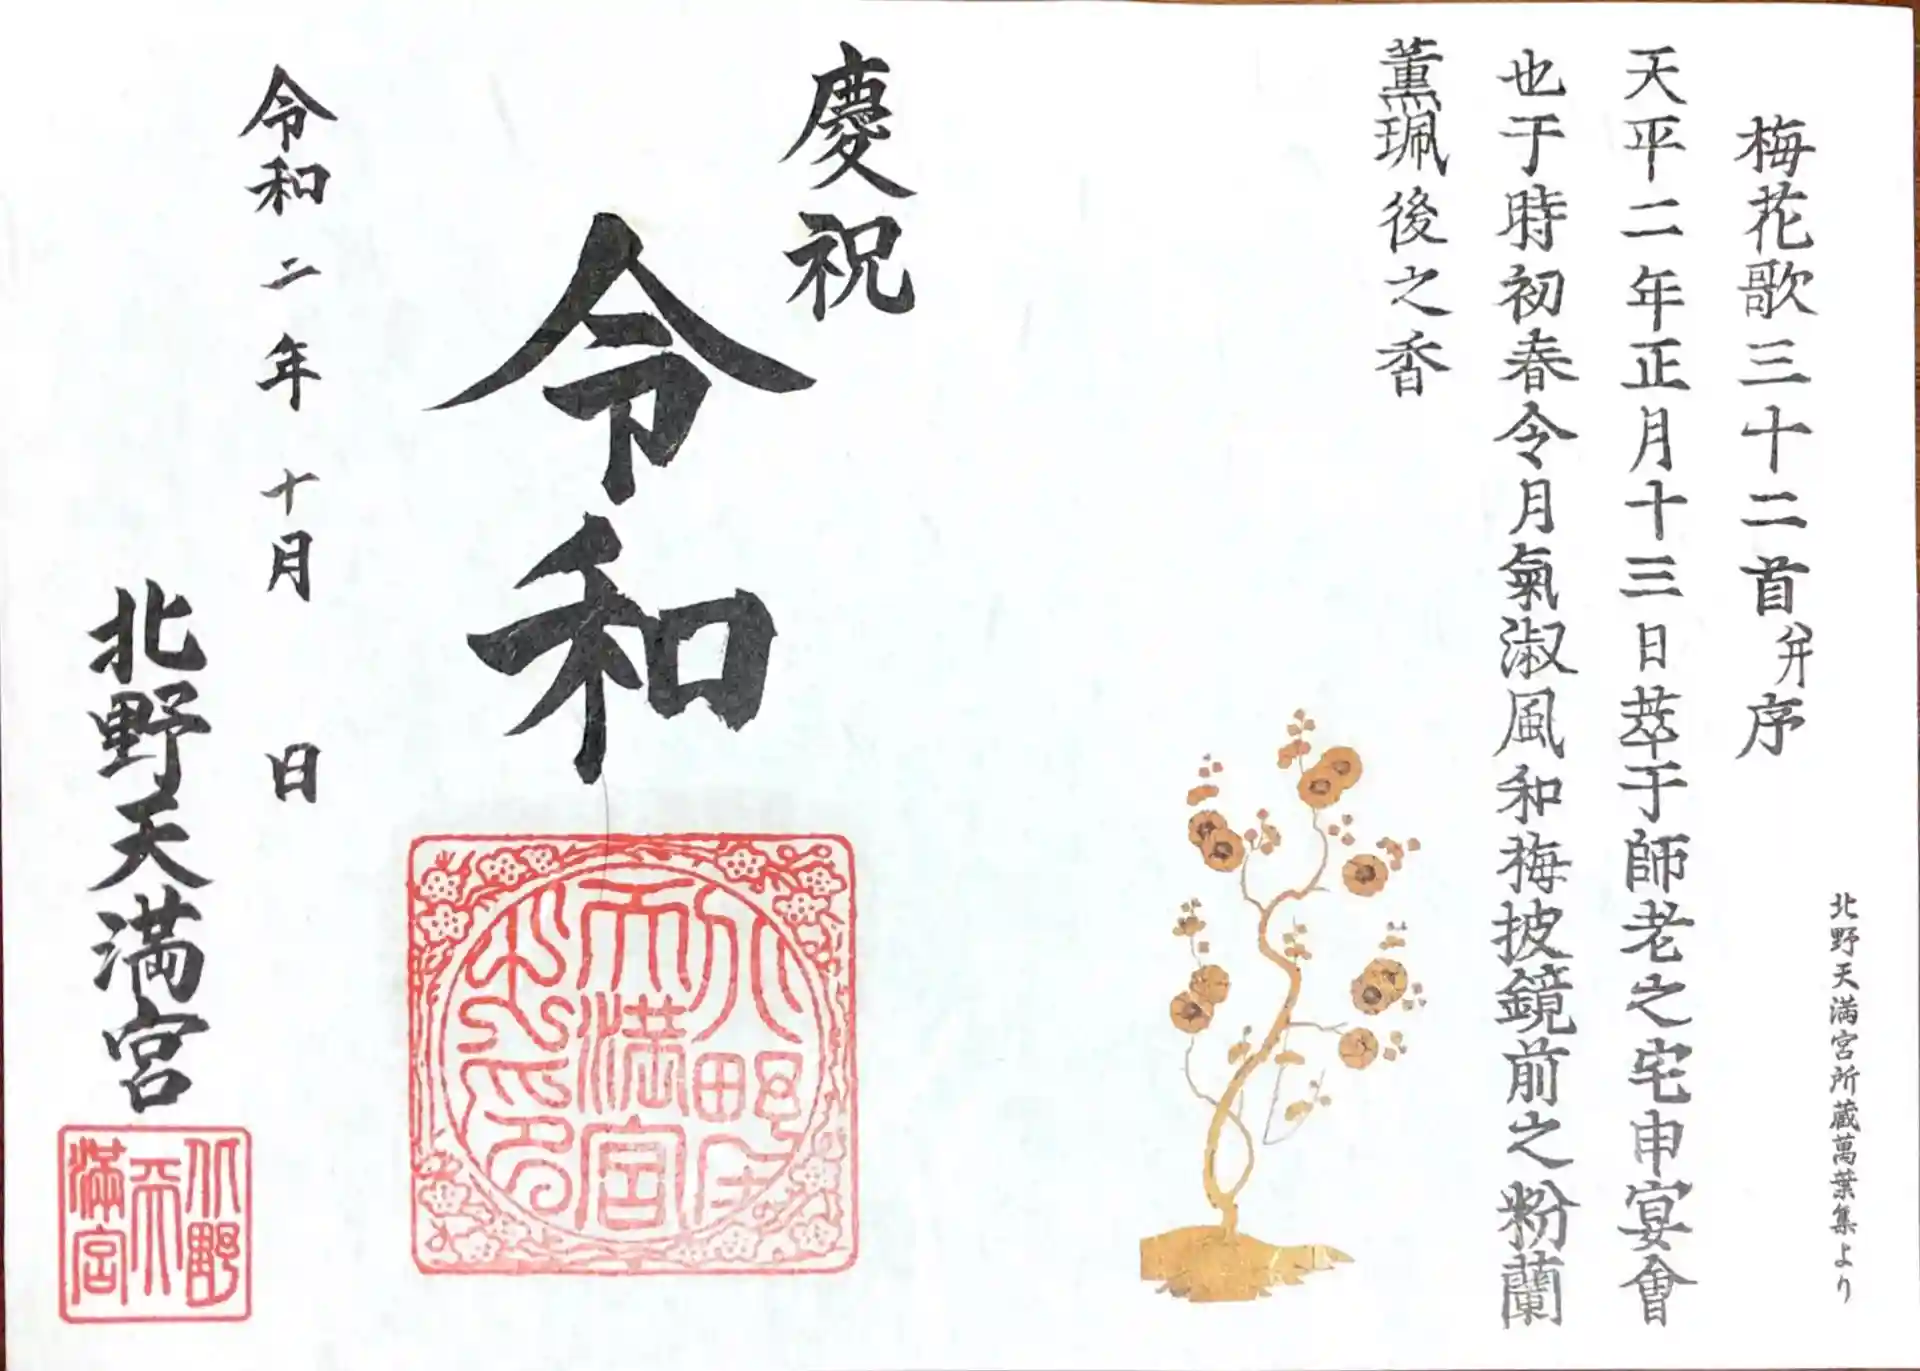 北野天満宮所蔵萬葉集より
梅花歌三十二首并序
天平二年正月十三日萃于師老之宅申宴會
也于時初春令月氣淑風和梅披鏡前之粉蘭
薫珮後之香
慶祝
令和
令和二年十月 日
北野天満宮
北野
天満宮
北野
天
満宮